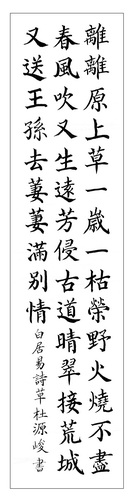 離離原上草一歲一枯榮野火燒不盡
春風吹又生遠芳侵古道晴翠接荒城
又送王孫去萋萋滿別情白居易詩草杜源峻書